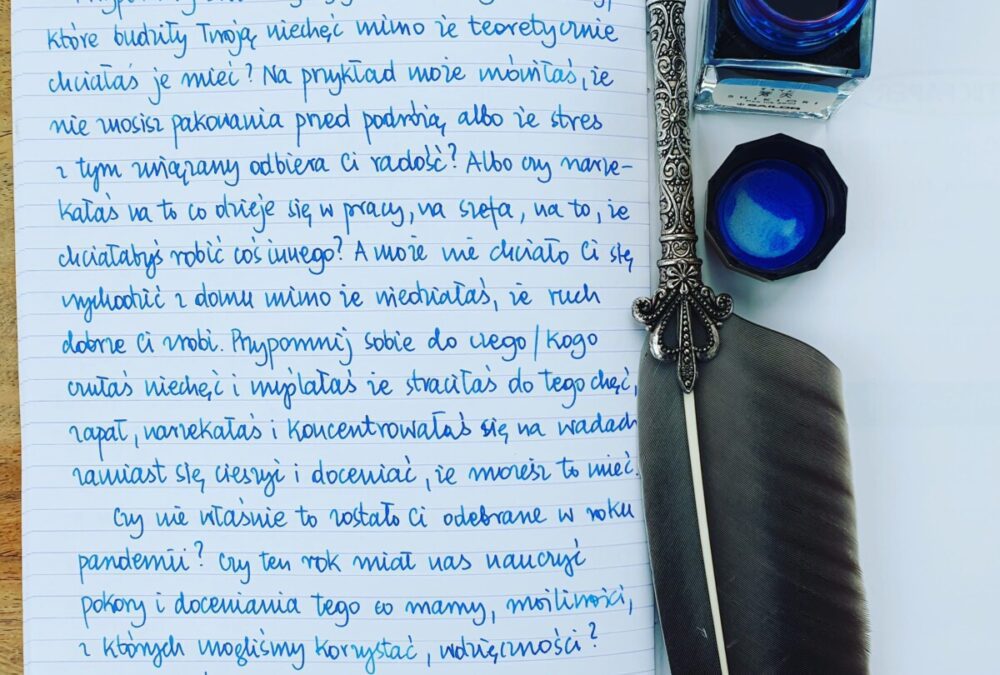 które budziły Twoją niechęć mimo że teoretycznie
chciałaś je mieć? Na przykład może mówiłaś, że
nie znosisz pakowania przed podróżą, albo że stres
z tym związany odbiera Ci radość? Albo czy narze-
kałaś na to co dzieje się w pracy, na szefa, na to, że
chciałabyś robić coś innego? A może nie chciało Ci się
wychodzić z domu mimo że wiedziałaś, że ruch
dobrze Ci zrobi. Przypomnij sobie do czego/kogo
czułaś niechęć i myślałaś że straciłaś do tego chęć,
zapał, narzekałaś i koncentrowałaś się na wadach
zamiast się cieszyć i doceniać, że możesz to mieć.
Czy nie właśnie to zostało Ci odebrane w roku
pandemii? Czy ten rok miał nas nauczyć
pokory i doceniania tego co mamy, możliwości,
z których mogliśmy korzystać, wdzięczności?